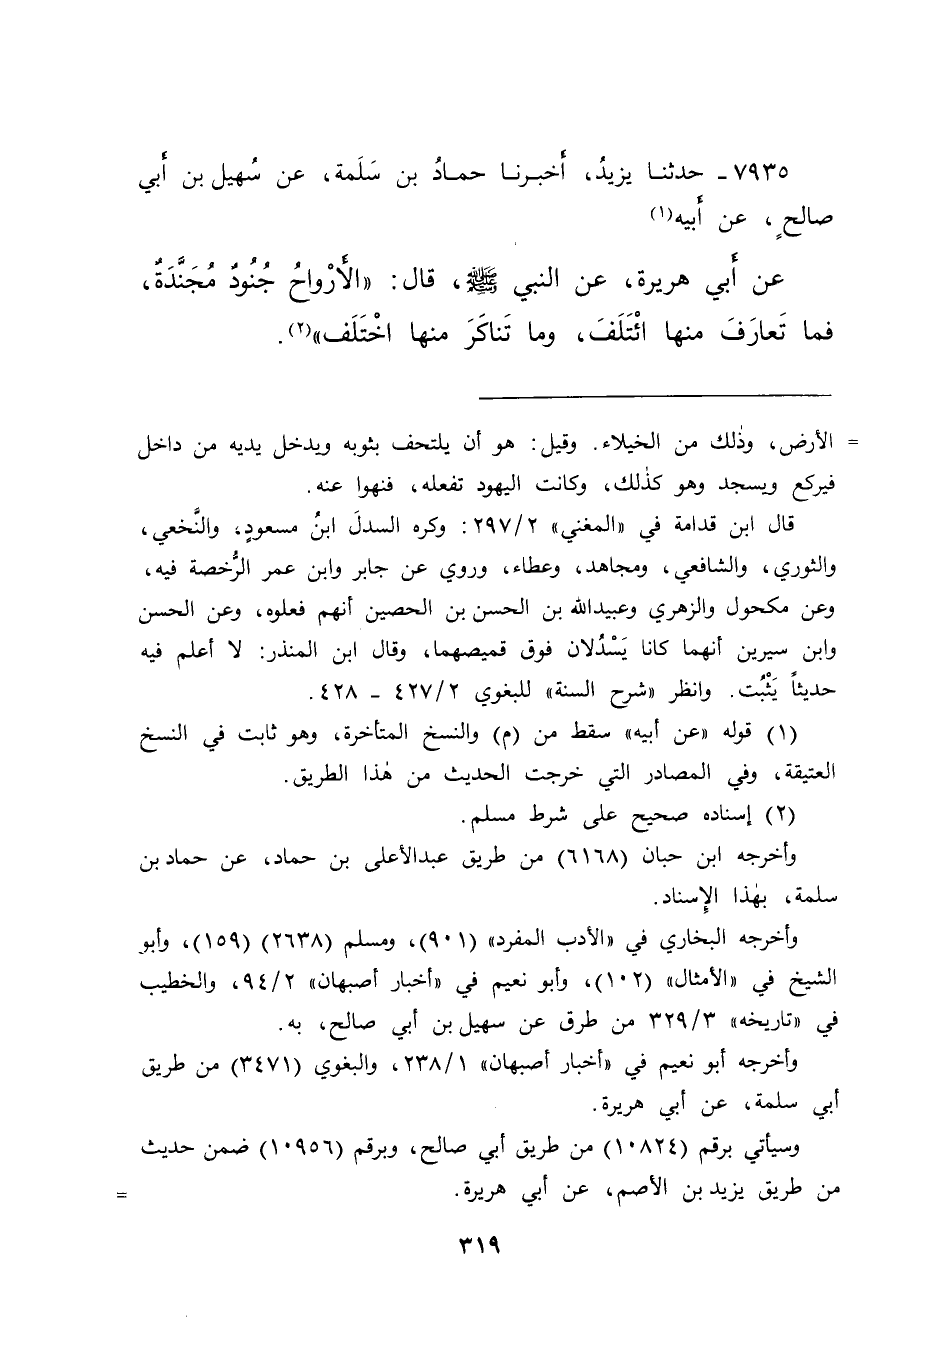 ٧٩٣٥ـ حدثنـا يزيدُ، أَخبـرنـا حمـادُ بن سَلَمة، عن سُهيل بن أَبي
صالحٍ، عن أَبيه(١)
عن أَبي هريرة، عن النبي ﷺ، قال: «الأَرْواحُ جُنُودٌ مُجَنَّدَةٌ،
فما تَعارَفَ منها ائْتَلَفَ، وما تَناكَرَ منها اخْتَلَف»(٢).
= الأرض، وذٰلك من الخيلاء. وقيل: هو أن يلتحف بثوبه ويدخل يديه من داخل
فيركع ويسجد وهو كذٰلك، وكانت اليهود تفعله، فنهوا عنه.
قال ابن قدامة في «المغني» ٢٩٧/٢: وكره السدلَ ابنُ مسعودٍ، والنَّخعي،
والثوري، والشافعي، ومجاهد، وعطاء، وروي عن جابر وابن عمر الرُّخصة فيه،
وعن مكحول والزهري وعبيدالله بن الحسن بن الحصين أنهم فعلوه، وعن الحسن
وابن سيرين أنهما كانا يَسْدُلان فوق قميصهما، وقال ابن المنذر: لا أعلم فيه
حديثاً يَثْبُت. وانظر «شرح السنة» للبغوي ٤٢٧/٢ ـ ٤٢٨.
(١) قوله «عن أبيه» سقط من (م) والنسخ المتأخرة، وهو ثابت في النسخ
العتيقة، وفي المصادر التي خرجت الحديث من هٰذا الطريق.
(٢) إسناده صحيح على شرط مسلم.
وأخرجه ابن حبان (٦١٦٨) من طريق عبدالأعلى بن حماد، عن حماد بن
سلمة، بهٰذا الإِسناد.
وأخرجه البخاري في «الأدب المفرد» (٩٠١)، ومسلم (٢٦٣٨) (١٥٩)، وأبو
الشيخ في «الأمثال» (١٠٢)، وأبو نعيم في «أخبار أصبهان» ٩٤/٢، والخطيب
في «تاريخه» ٣٢٩/٣ من طرق عن سهيل بن أبي صالح، به.
وأخرجه أبو نعيم في «أخبار أصبهان» ٢٣٨/١، والبغوي (٣٤٧١) من طريق
أبي سلمة، عن أبي هريرة.
وسيأتي برقم (١٠٨٢٤) من طريق أبي صالح، وبرقم (١٠٩٥٦) ضمن حديث
من طريق يزيد بن الأصم، عن أبي هريرة. =
٣١٩